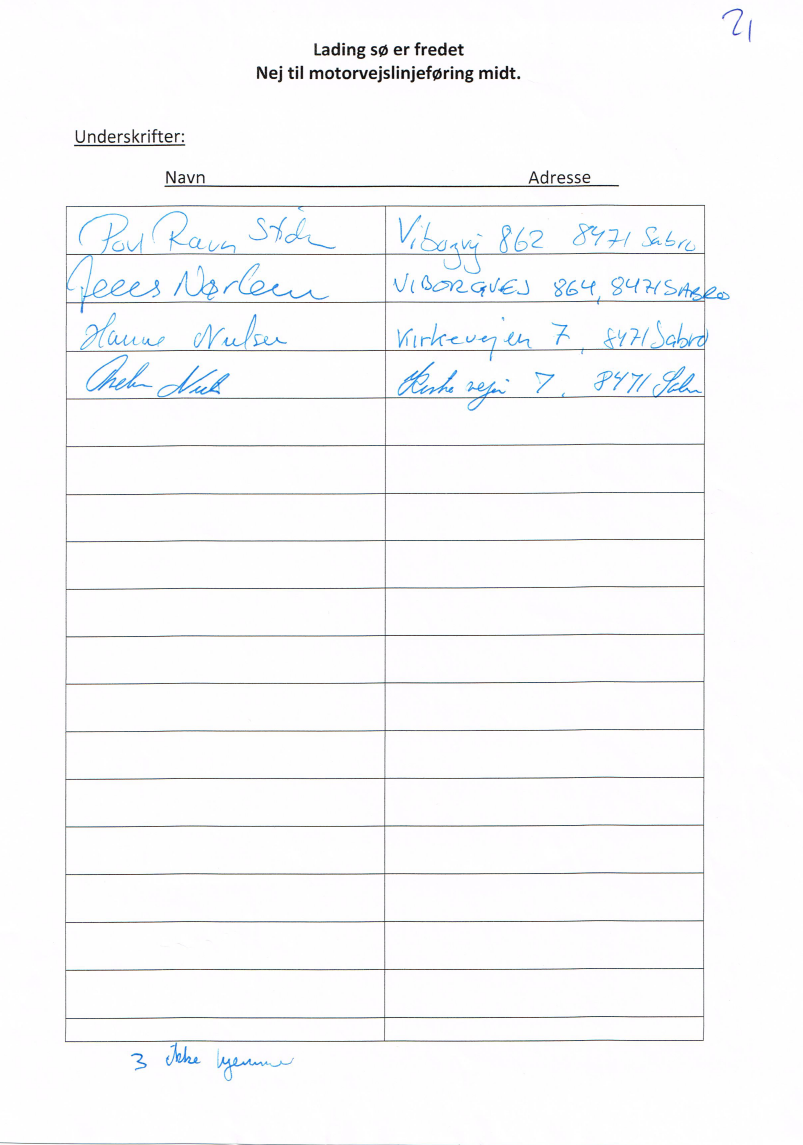 21
Lading sø er fredet
Nej til motorvejslinjeføring midt.
Underskrifter:
Navn Adresse
Poul Ravn Viborgvj 862 8471 Sabro
Nørlem VIBORGVEJ 864, 8471 SABRO
Hanne Nielsen Kirkevejen 7, 8471 Sabro
7, 8471
3 ikke hjemme